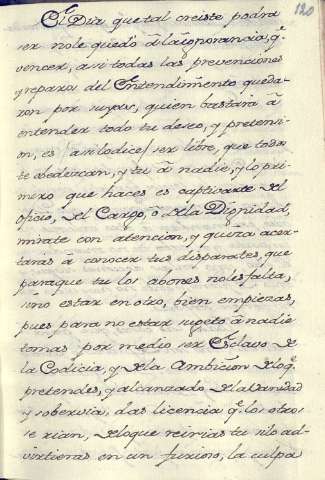 120
El Dia que tal creiste podra
ser no le quedó á la ignorancia, q.e
vencer, asi todas las prevenciones
y reparos del Entendim.to queda-
ron por suyas, quien bastará á
entender todo tu deseo, y pretensi-
on, es (asi lo dice) ser libre, que todos
te obedezcan, y tu á nadie, y lo pri-
mero que haces es captivarte del
oficio, del Cargo, ó de la Dignidad,
mirate con atencion, y quiza acer-
taras á conocer tus disparates, que
para que tu los abones no les falta,
sino estar en otro, bien empiezas,
pues para no estar sugeto á nadie
tomas por medio ser Esclavo de
la Codicia, y de la Ambicion de lo q.e
pretendes, y alcanzado de la Vanidad
y sobervia, das licencia q.e los otros
se rian, de lo que reirias tu si lo ad-
virtieras en un furioso, la culpa